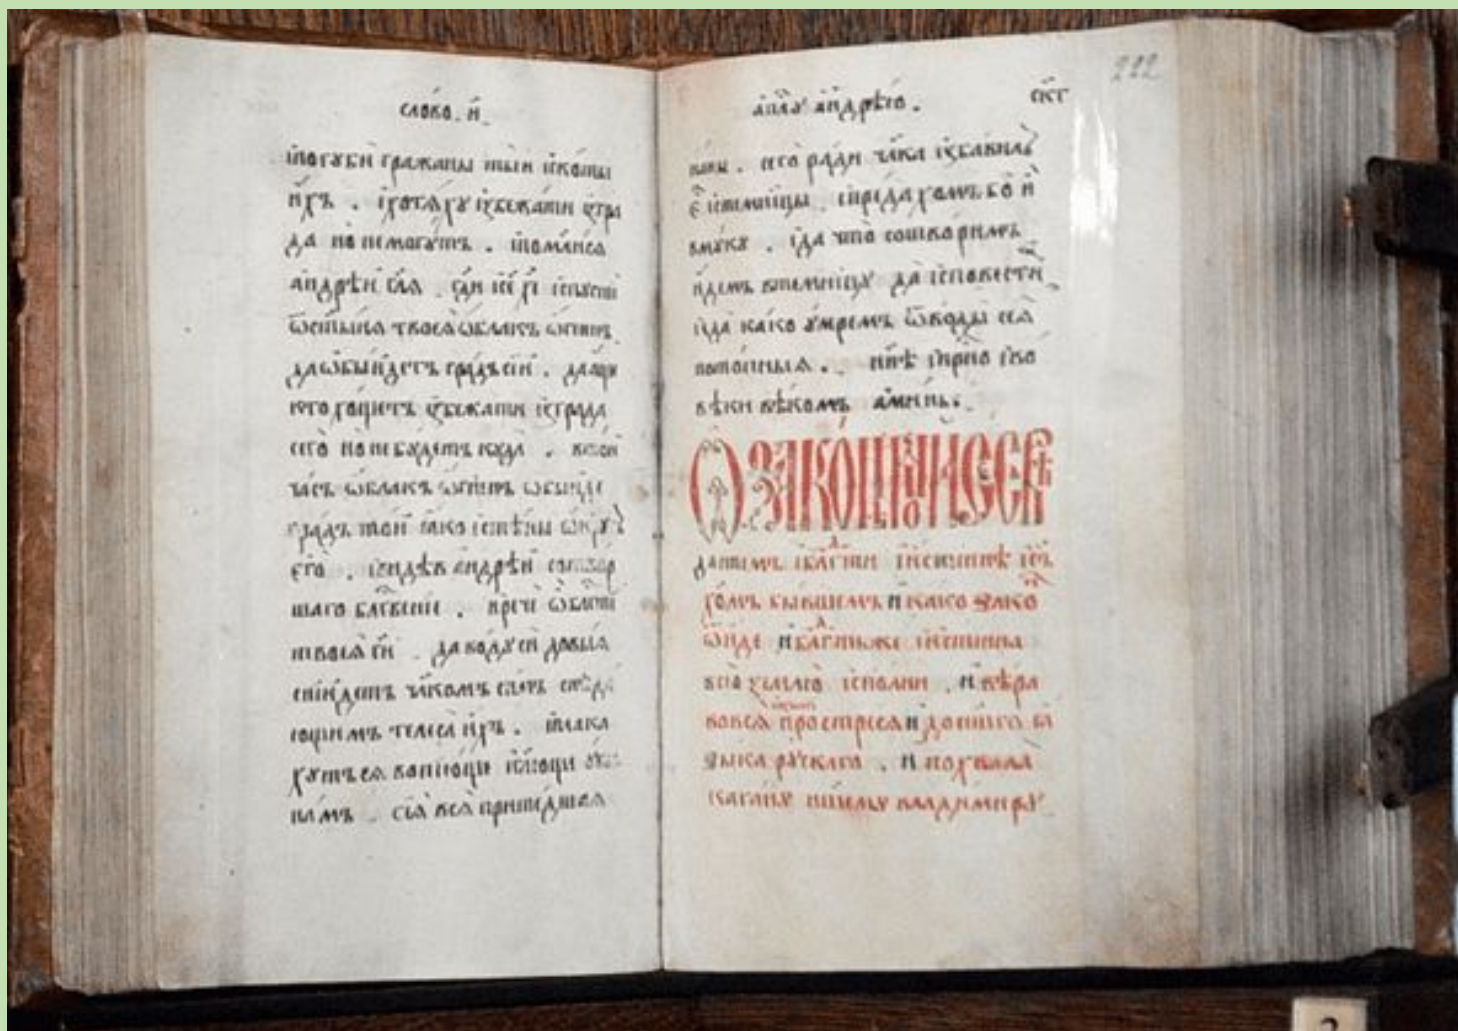 слово. и҃.
ѝпогуби гражаны тыи ѝскоты
и́хъ. ѝхотѧ́ху ѝзбежати ѝзгра
да но немогутъ. ѝпомлисѧ
андрѣи глѧ. гди ѝсе хе ѝспусти
ѿстыни твоеѧ ѡблакъ ѡгненъ
да ѡбыидетъ градъ сіи. дащи
кто хощетъ ѝзбежати ѝзграда
сего но небудетъ куда. втои
часъ ѡблакъ ѡгненъ ѡбыиде
градъ тои ꙗко ѝстѣны ѡкрⷭ҇тъ
его. ѝвидѣв андрѣи
шаго блгвеніе. ѝрече
твоеѧ ги. да водуси довыѧ
снидетъ члкомъ
ющимъ телеса ихъ. ѝплака
хутьсѧ вопиющи ѝглющи
намъ. сіѧ всѧ пришедшаѧ
апⷭ҇лу андрѣю. скг
222
наны. сего ради члка ѝзбавилъ
є ѝстемницы. ѝпредахомъ бо и
вмуку. ѝда что сотворимъ
идемъ втемницу да ѝсповести
ѝда како умремъ ѿводы сеѧ
потопныѧ. ннѣ ѝпрно ѝво
вѣки вѣкомъ аминь.
О законѣ моисеѡⷨ҇
даннемъ ѝблгⷣти ѝистиннѣ ѝсъ
хⷭ҇омъ бывшемъ и како зако
ѿиде и блгⷣтьже ѝистинна
всю землю ѝсполни. и вѣра
вовсѧ ꙗзыки простресѧ и донашего ꙗ
зыка рускаго. и похвала
кагану нашему владимиру